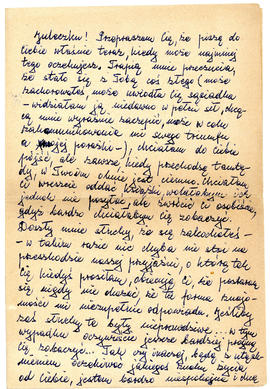 Luboczku! Przepraszam Cię, że piszę do
Ciebie właśnie teraz, kiedy może najmniej
tego oczekujesz. Trapią mnie przeczucia,
że stało się z Tobą coś złego (może
zachorowałeś, może uwiodła Cię sąsiadka
- widziałam ją niedawno w pełni sił, chcą-
cą mnie wyraźnie zaczepić, może w celu
zakomunikowania mi swego triumfu
a mojej porażki -), chciałam do Ciebie
pójść, ale zawsze kiedy przechodzę tamtę-
dy, w Twoim oknie jest ciemno. Chciałam
Ci wreszcie oddać książki, wolałabym ich
jednak nie posyłać, ale zwrócić Ci osobiście,
gdyż bardzo chciałabym Cię zobaczyć.
Doszły mnie słuchy, że się zakochałeś -
- w takim razie nic chyba nie stoi na
przeszkodzie naszej przyjaźni, o którą tak
Cię kiedyś prosiłam, obiecuję Ci, że postaram
się, nigdy nie okazać że ta forma znajo-
mości mi niezupełnie odpowiada. Jeśliby
zaś słuchy te były nieprawdziwe... w tym
wypadku oczywiście jeszcze bardziej pragnę
Cię zobaczyć... Tak czy inaczej będę z utęsk-
nieniem oczekiwać jakiegoś znaku życia
od Ciebie, jestem bardzo niespokojna i chcę